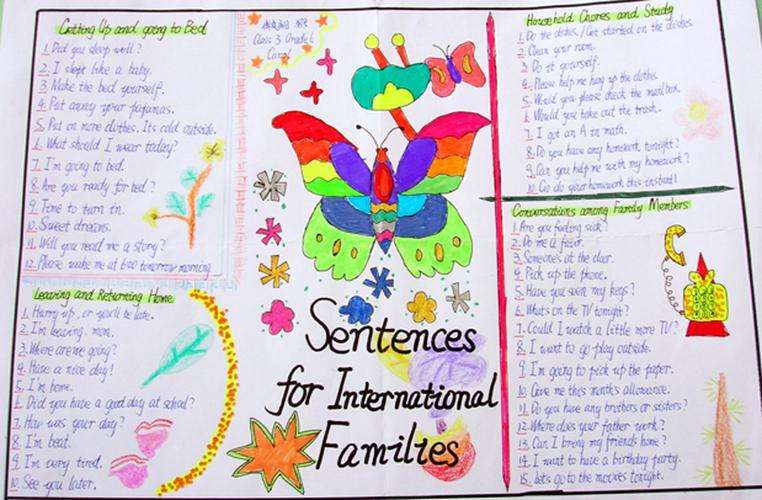 Getting Up and going to Bed
1. Did you sleep well?
2. I slept like a baby.
3. Make the bed yourself.
4. Put away your pajamas.
5. Put on more clothes. Its cold outside.
6. What should I wear today?
7. I'm going to bed.
8. Are you ready for bed?
9. Time to turn in.
10. Sweet dreams.
11. Will you read me a story?
12. Please wake me at tomorrow morning.
Leaving and Returning Home
1. Hurry up, or you'll be late.
2. I'm leaving, mom.
3. Where are we going?
4. Have a nice day!
5. I'm home.
6. Did you have a good day at school?
7. How was your day?
8. I'm beat.
9. I'm very tired.
10. See you later.
Class 3 Grade 6
Carol
Sentences
for International
Families
Household Chores and Study
1. Do the dishes. / Get started on the dishes.
2. Clean your room.
3. Do it yourself.
4. Please help me hang up the clothes.
5. Would you please check the mailbox.
6. Would you take out the trash.
7. I got an A in math.
8. Do you have any homework tonight?
9. Can you help me with my homework?
10. Go do your homework this instant!
Conversations among Family Members
1. Are you feeling sick?
2. Do me a favor.
3. Someone's at the door.
4. Pick up the phone.
5. Have you seen my keys?
6. What's on the TV tonight?
7. Could I watch a little more TV?
8. I want to go play outside.
9. I'm going to pick up the paper.
10. Give me this month's allowance.
11. Do you have any brothers or sisters?
12. Where does your father work?
13. Can I bring my friends home?
14. I want to have a birthday party.
15. Lets go to the movies tonight.